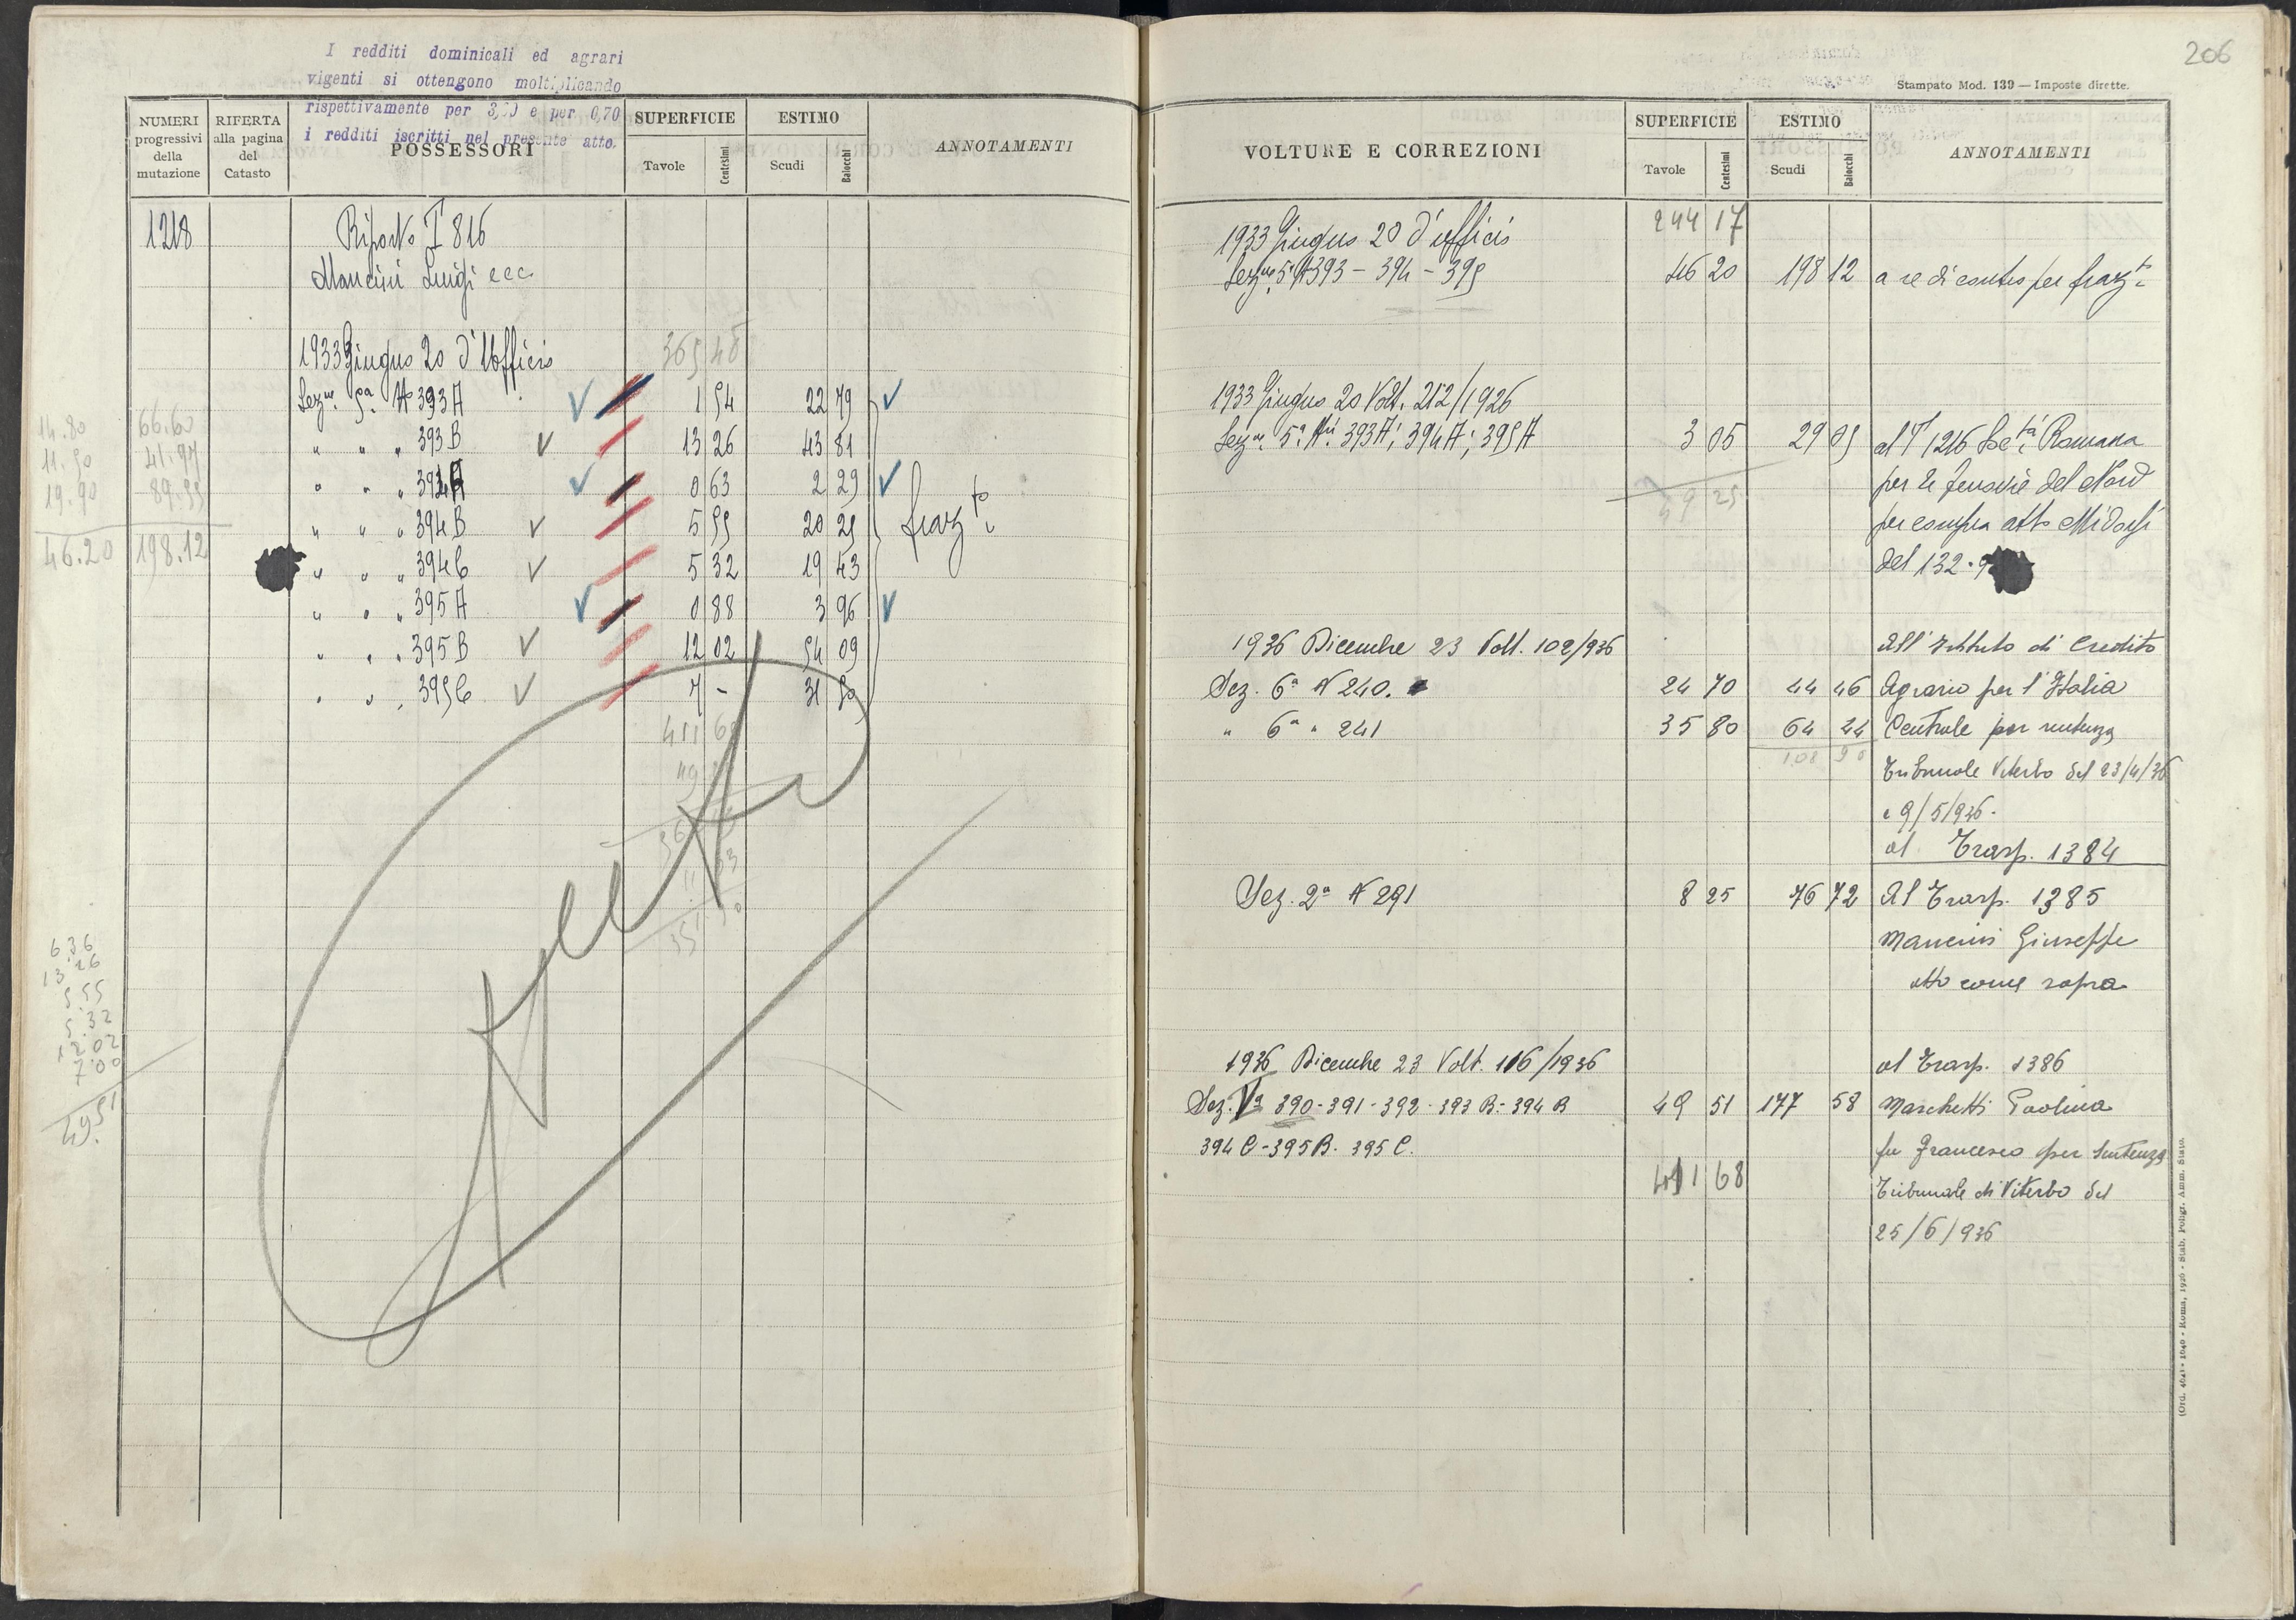 I redditi dominicali ed agrari
vigenti si ottengono moltiplicando
rispettivamente per 3, e per 0,70
i redditi iscritti nel presente atto.
NUMERI progressivi della mutazione
RIFERTA alla pagina del Catasto
POSSESSORI
SUPERFICIE
Tavole Centesimi
ESTIMO
Scudi Baiocchi
ANNOTAMENTI
1218 Riporto T 816
Mancini Luigi ecc
1933 Giugno 20 d'Ufficio 365 48
Sezne 5a No 393 A 1 54 22 79
" " " 393 B 13 26 43 81
" " " 394 A 0 63 2 29
" " " 394 B 5 55 20 25
frazto
" " " 394 C 5 32 19 43
" " " 395 A 0 88 3 96
" " " 395 B 12 02 54 09
" " " 395 C 7 - 31 50
411 68
14.80 66.60
11.50 41.97
19.90 89.55
46.20 198.12
6.36
13.26
5.55
5.32
12.02
7.00
49.51
206
Stampato Mod. 139 — Imposte dirette.
VOLTURE E CORREZIONI
SUPERFICIE
Tavole Centesimi
ESTIMO
Scudi Baiocchi
ANNOTAMENTI
244 17
1933 Giugno 20 d'ufficio
Sezne 5a No 393 - 394 - 395 46 20 198 12 a se di contro per frazto
1933 Giugno 20 Volt. 212/1926
Sezne 5a Ni 393 A; 394 A; 395 A 3 05 29 05 al T 1216 Società Romana
49 25 per le ferrovie del Nord
per compra atto
del 132.9
1936 Dicembre 23 Volt. 102/936 All'Istituto di Credito
Sez. 6a N 240. 24 70 44 46 Agrario per l'Italia
" 6a " 241 35 80 64 44 Centrale per sentenza
108 90
Tribunale Viterbo del 23/4/36
e 9/5/936.
al Trasp. 1384
Sez. 2a N 291 8 25 76 72 Al Trasp. 1385
Mancini Giuseppe
atto come sopra
1936 Dicembre 23 Volt. 116/1936 al Trasp. 1386
Sez. Va 390-391-392-393 B.-394 B 49 51 177 58 Marchetti Paolina
394 C-395 B. 395 C. fu Francesco per sentenza
411 68 Tribunale di Viterbo del
25/6/936
(Ord. 4041 - 1040 - Roma, 1926 - Stab. Poligr. Amm. Stato.